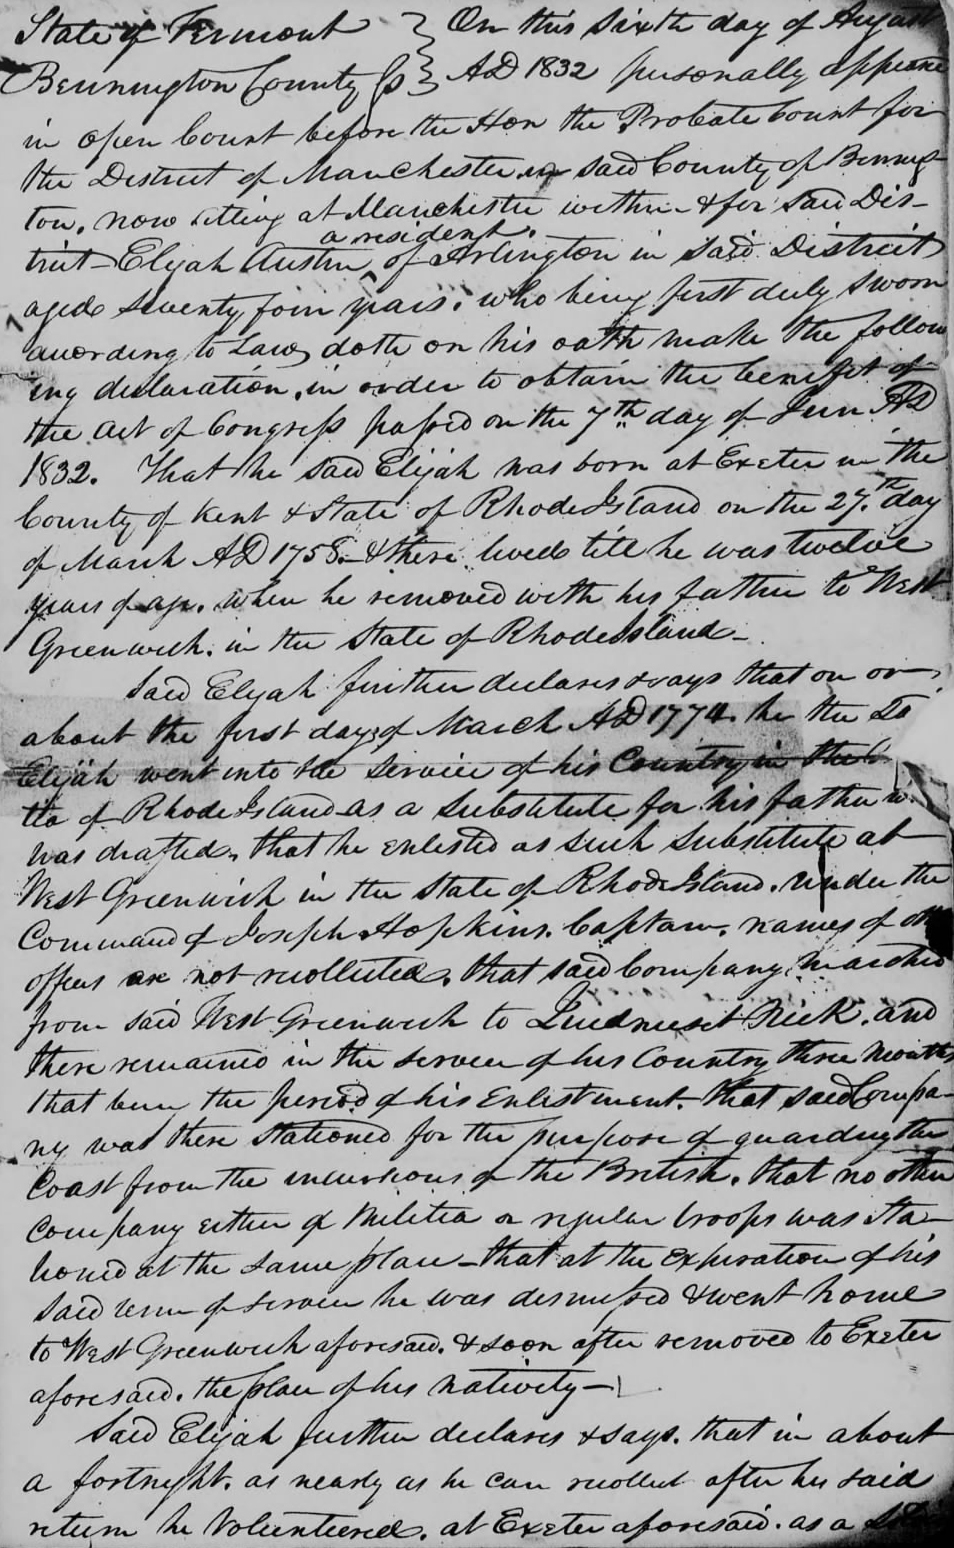 State of Vermont } On this sixth day of August
Bennington County Ss } AD 1832 personally appeare
in open Court before the Hon the Probate Court for
the District of Manchester in said County of Benning-
ton, now sitting at Manchester within & for said Dis-
a resident
trict Elijah Austin ^ of Arlington in said District
aged seventy four years. who being first duly sworn
according to Law, doth on his oath make the follow
ing declaration, in order to obtain the benefit of
the act of Congress passed on the 7th day of Jun AD
1832. That he said Elijah was born at Exeter in the
County of Kent & State of Rhode Island on the 27th day
of March AD 1758. & there lived till he was twelve
years of age. when he removed with his father to West
Greenwich. in the State of Rhode Island -
Said Elijah further declares & says that on or
about the first day of March AD 1774. he the Sd
Elijah went into the service of his Country in the
of Rhode Island as a substitute for his father
was drafted, that he enlisted as such substitute at
West Greenwich in the State of Rhode Island. under the
Command of Joseph Hopkins. Captain. names of
officers are not recollected. that said Company marched
from said West Greenwich to Neck. and
there remained in the service of his Country three months
that been the period of his Enlistment. that said Compa-
ny was there stationed for the purpose of guarding the
Coast from the incursions of the British. that no other
company either of Militia or regular troops was sta-
tioned at the same place - that at the expiration of his
said term of service he was dismissed & went home
to West Greenwich aforesaid. & soon after removed to Exeter
aforesaid. the place of his nativity -
Said Elijah further declares & says. that in about
a fortnight. as nearly as he can recollect after his said
return he Volunteered. at Exeter aforesaid. as a